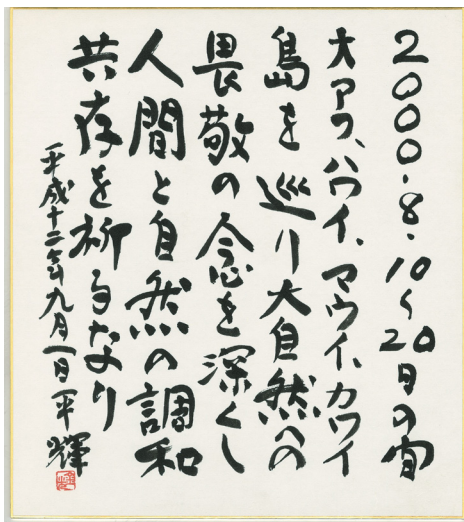 2000.8.10〜20日の間
オアフ、ハワイ、マウイ、カワイ
島を巡り大自然への
畏敬の念を深くし
人間と自然の調和
共存を祈るなり
平成十二年九月一日 平輝